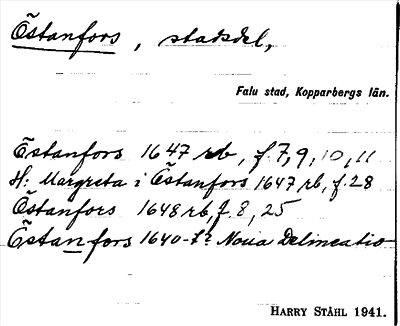 Östanfors, stadsdel,
Falu stad, Kopparbergs län.
Östanfors 1647 rb, f. 7, 9, 10, 11
H: Margreta i Östanfors 1647 rb, f. 28
Östanfors 1648 rb, f. 8, 25
Östanfors 1640-t? Noua Delineatio
HARRY STÅHL 1941.